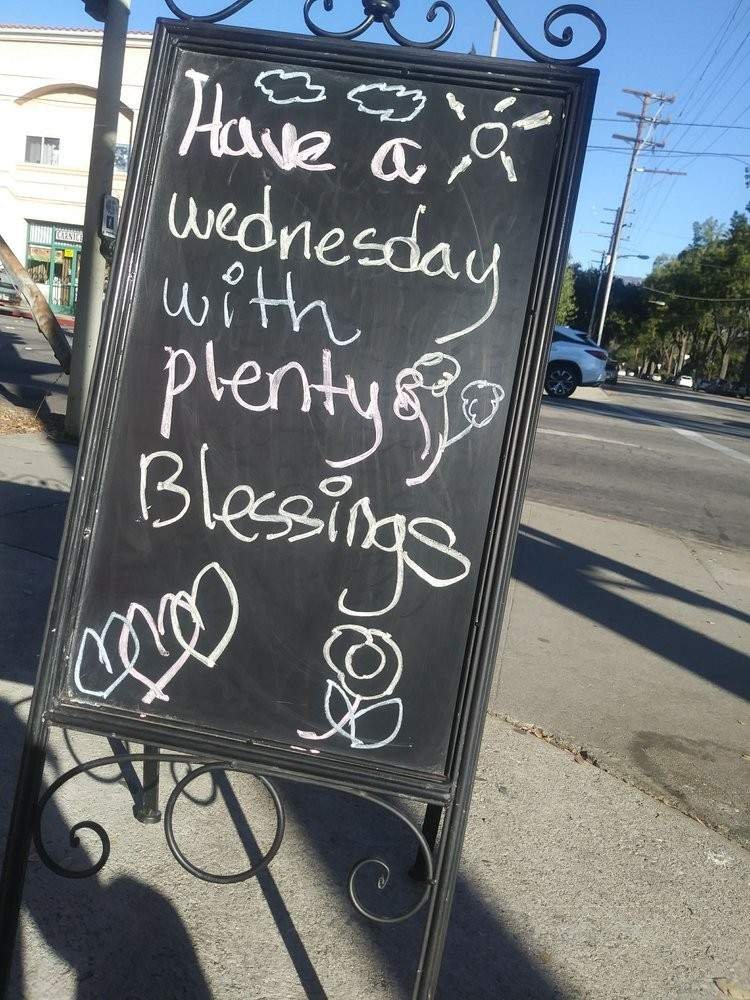 Have a
wednesday
with
plenty
Blessings